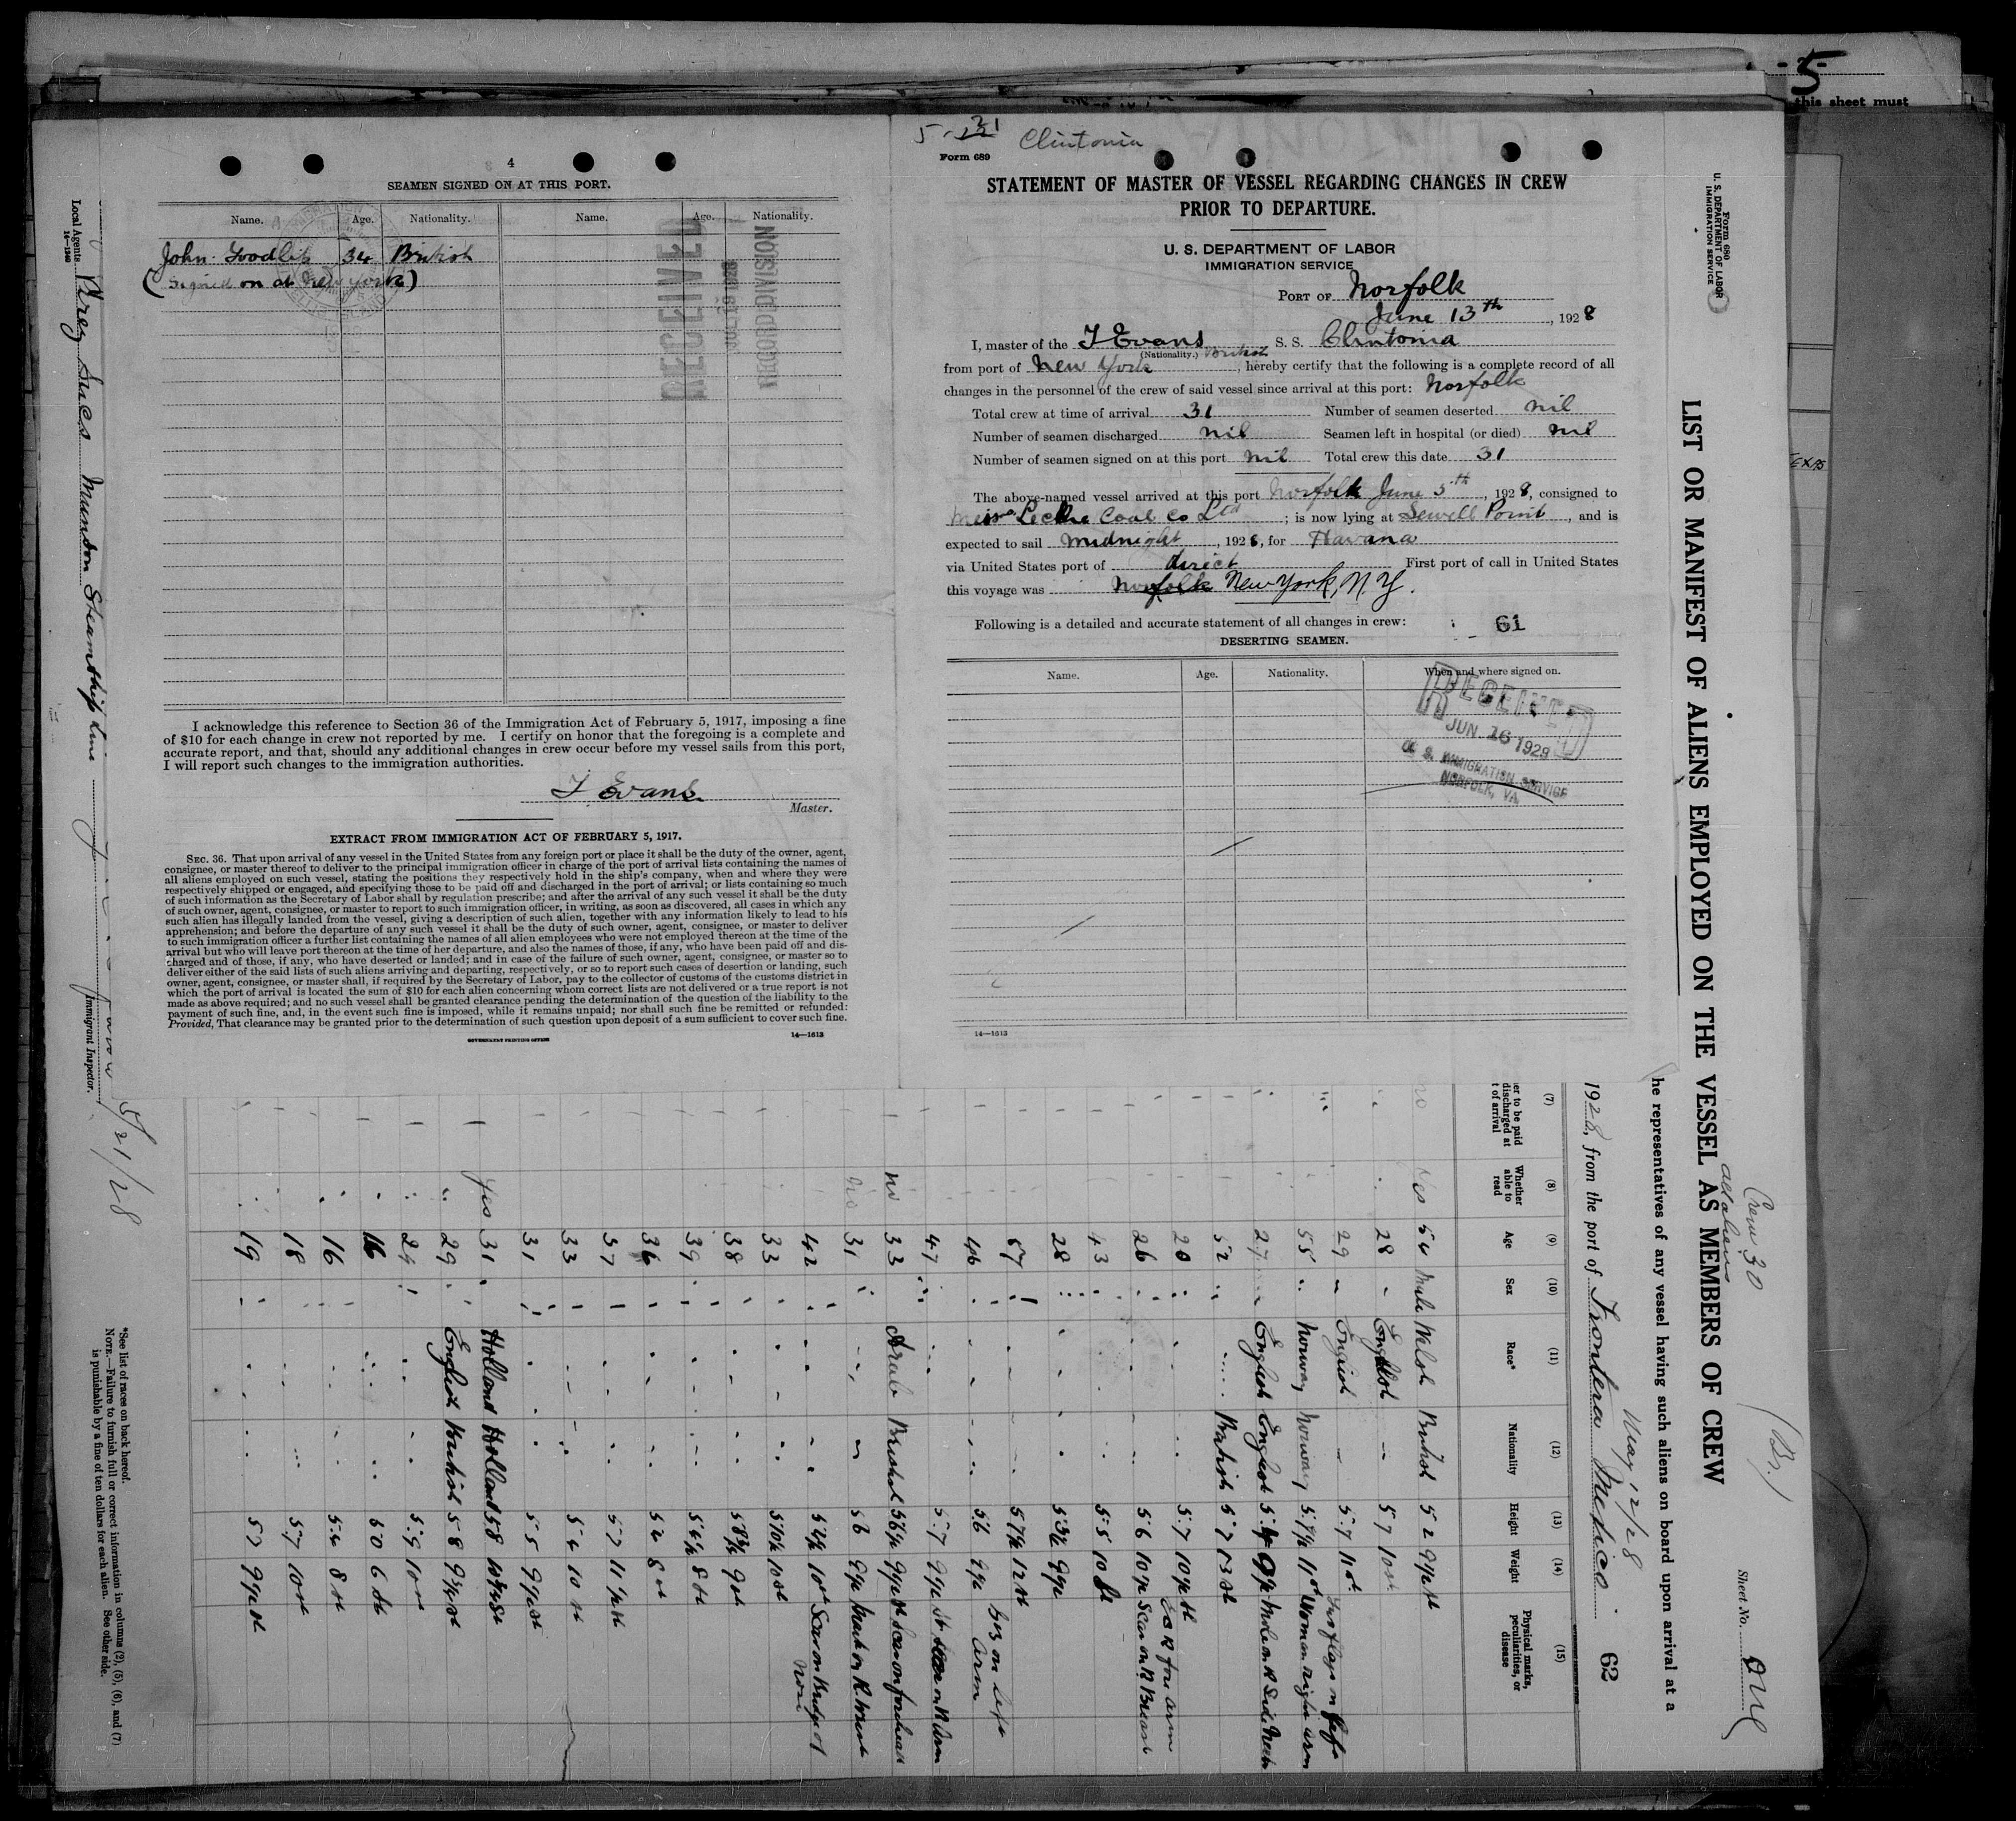 5
this sheet must
4
SEAMEN SIGNED ON AT THIS PORT.
Name. Age. Nationality. Name. Age. Nationality.
John 34 British
(Signed on at New York)
RECEIVED
I acknowledge this reference to Section 36 of the Immigration Act of February 5, 1917, imposing a fine
of $10 for each change in crew not reported by me. I certify on honor that the foregoing is a complete and
accurate report, and that, should any additional changes in crew occur before my vessel sails from this port,
I will report such changes to the immigration authorities.
J Evans
Master.
EXTRACT FROM IMMIGRATION ACT OF FEBRUARY 5, 1917.
SEC. 36. That upon arrival of any vessel in the United States from any foreign port or place it shall be the duty of the owner, agent,
consignee, or master thereof to deliver to the principal immigration officer in charge of the port of arrival lists containing the names of
all aliens employed on such vessel, stating the positions they respectively hold in the ship's company, when and where they were
respectively shipped or engaged, and specifying those to be paid off and discharged in the port of arrival; or lists containing so much
of such information as the Secretary of Labor shall by regulation prescribe; and after the arrival of any such vessel it shall be the duty
of such owner, agent, consignee, or master to report to such immigration officer, in writing, as soon as discovered, all cases in which any
such alien has illegally landed from the vessel, giving a description of such alien, together with any information likely to lead to his
apprehension; and before the departure of any such vessel it shall be the duty of such owner, agent, consignee, or master to deliver
to such immigration officer a further list containing the names of all alien employees who were not employed thereon at the time of the
arrival but who will leave port thereon at the time of her departure, and also the names of those, if any, who have been paid off and dis-
charged and of those, if any, who have deserted or landed; and in case of the failure of such owner, agent, consignee, or master so to
deliver either of the said lists of such aliens arriving and departing, respectively, or so to report such cases of desertion or landing, such
owner, agent, consignee, or master shall, if required by the Secretary of Labor, pay to the collector of customs of the customs district in
which the port of arrival is located the sum of $10 for each alien concerning whom correct lists are not delivered or a true report is not
made as above required; and no such vessel shall be granted clearance pending the determination of the question of the liability to the
payment of such fine, and, in the event such fine is imposed, while it remains unpaid; nor shall such fine be remitted or refunded:
Provided, That clearance may be granted prior to the determination of such question upon deposit of a sum sufficient to cover such fine.
14—1613
GOVERNMENT PRINTING OFFICE
Clintonia
Form 689
STATEMENT OF MASTER OF VESSEL REGARDING CHANGES IN CREW
PRIOR TO DEPARTURE.
U. S. DEPARTMENT OF LABOR
IMMIGRATION SERVICE
PORT OF Norfolk
June 13th, 1928
I, master of the J Evans S. S. Clintonia
(Nationality.) British
from port of New York, hereby certify that the following is a complete record of all
changes in the personnel of the crew of said vessel since arrival at this port: Norfolk
Total crew at time of arrival 31 Number of seamen deserted nil
Number of seamen discharged nil Seamen left in hospital (or died) nil
Number of seamen signed on at this port nil Total crew this date 31
The above-named vessel arrived at this port Norfolk June 5th, 1928, consigned to
Coal Co Ltd; is now lying at Sewell Point, and is
expected to sail midnight, 1928, for Havana
via United States port of direct First port of call in United States
this voyage was Norfolk New York, N.Y.
Following is a detailed and accurate statement of all changes in crew: 61
DESERTING SEAMEN.
Name. Age. Nationality. When and where signed on.
RECEIVED
JUN 16 1928
U. S. IMMIGRATION SERVICE
NORFOLK, VA.
14—1613
Form 680
U. S. DEPARTMENT OF LABOR
IMMIGRATION SERVICE
LIST OR MANIFEST OF ALIENS EMPLOYED ON THE VESSEL AS MEMBERS OF CREW
Crew 30
(Br.)
Sheet No. One
he representatives of any vessel having such aliens on board upon arrival at a
May 12/28
1928, from the port of Frontera Mexico 62
(7) (8) (9) (10) (11) (12) (13) (14) (15)
er to be paid
discharged at
t of arrival
Whether
able to
read
Age Sex Race* Nationality Height Weight
Physical marks,
peculiarities, or
disease
Yes 54 Male Welsh British 5 2 9½ st
28 English 5 7 10 st
29 English 5.7 11 st
55 Norway Norway
27 English English
52 British 5 7 13 st
20 5.7 10½ st
26 5 6 10½ Scar on R Breast
43 5.5 10 st
28
57 5 7½ 12 st
46 5 6 9½
47 5.7 9½ st
no 33 Arab British 5 6½ 9½ st Scar on forehead
no 31 5 6 9½
42 5 4½ 10 st Scar on Bridge of Nose
33 5 10½ 10 st
38 9 st
39 8 st
36 8 st
37 5 7 11½ st
33 10 st
31 5 5 9½ st
Yes 31 Holland Holland 5 8 10½ st
29 English British 5 8 9½ st
24 5.9 10 st
16 5 0 6 st
16 8 st
18 5.7 10 st
19 5 7 9½ st
*See list of races on back hereof.
NOTE.—Failure to furnish full or correct information in columns (2), (5), (6), and (7)
is punishable by a fine of ten dollars for each alien. See other side.
Local Agents
14—1240
Munson Steamship Line
Immigrant Inspector.
5/21/28